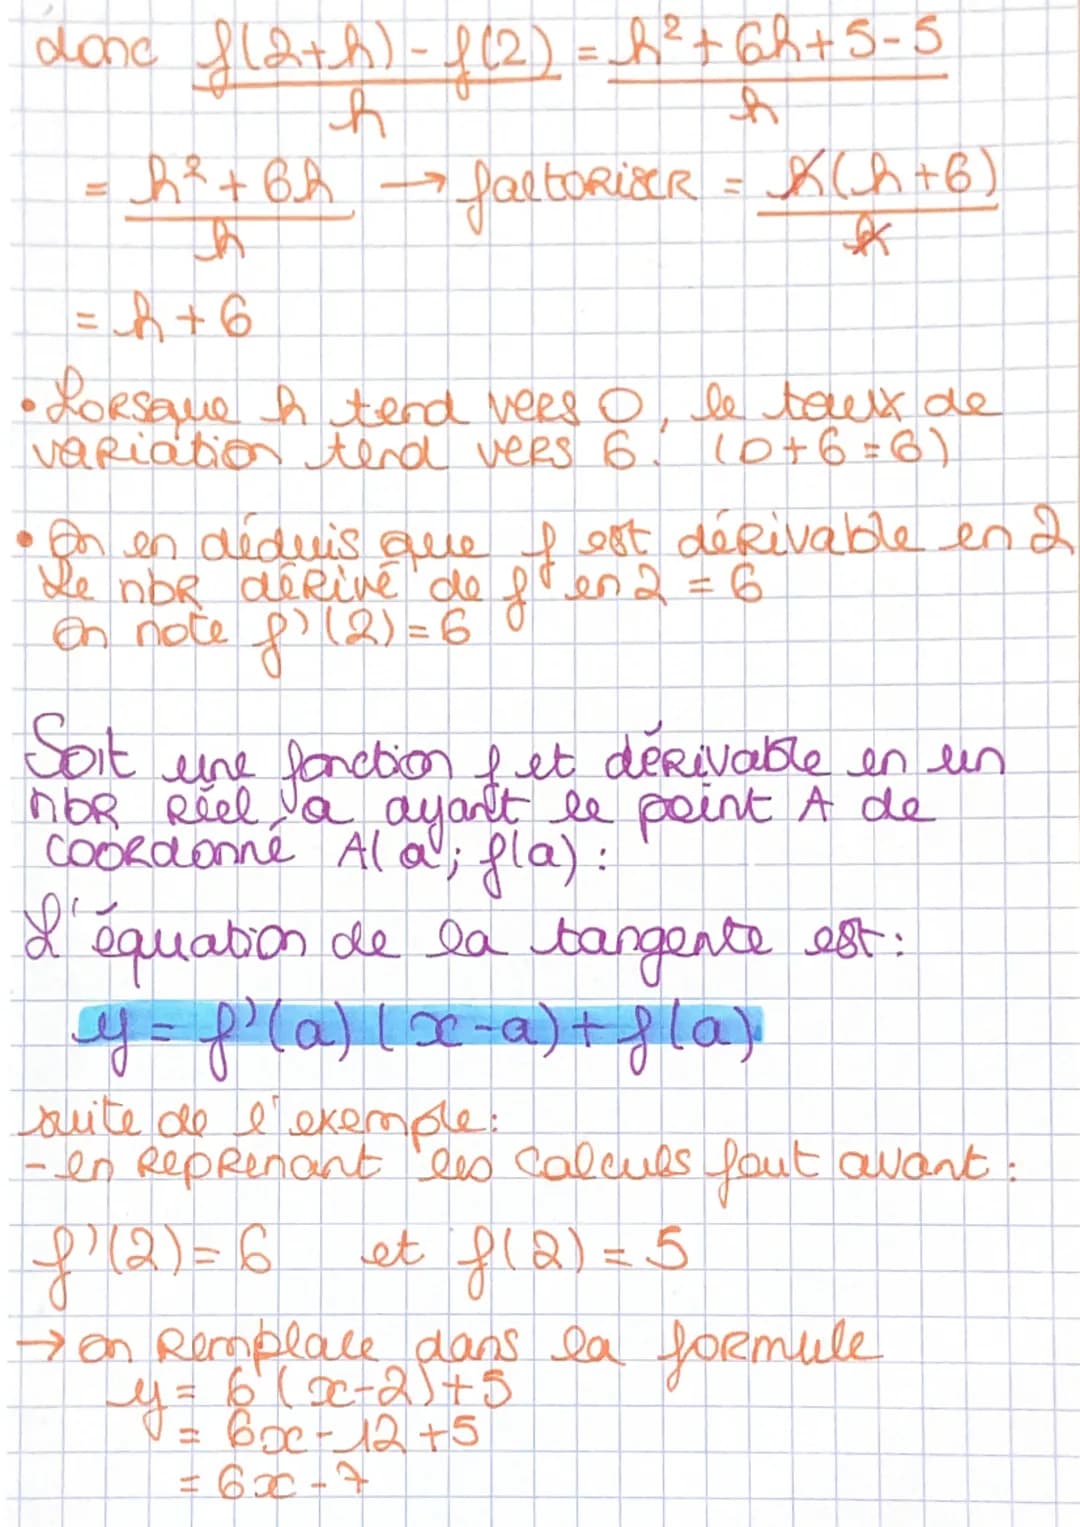 donc f(2+h)-f(2)/h = h²+6h+5-5/h
= h²+6h/h → factoriser = h(h+6)/h
= h+6
• Lorsque h tend vers 0, le taux de
variation tend vers 6. (0+6=6)
• On en déduis que f est dérivable en 2
Le nbr dérivé de f en 2 = 6
On note f'(2)=6
Soit une fonction f et dérivable en un
nbr réel a ayant le point A de
coordonné A(a; f(a) :
L'équation de la tangente est :
y = f'(a) (x-a) + f(a)
suite de l'exemple :
- en reprenant les calculs fait avant :
f'(2)=6 et f(2)=5
→ on remplace dans la formule
y = 6(x-2)+5
= 6x-12+5
= 6x-7